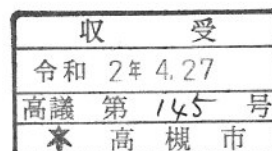 収受
令和 2年 4.27
高議 第 145 号
高槻市